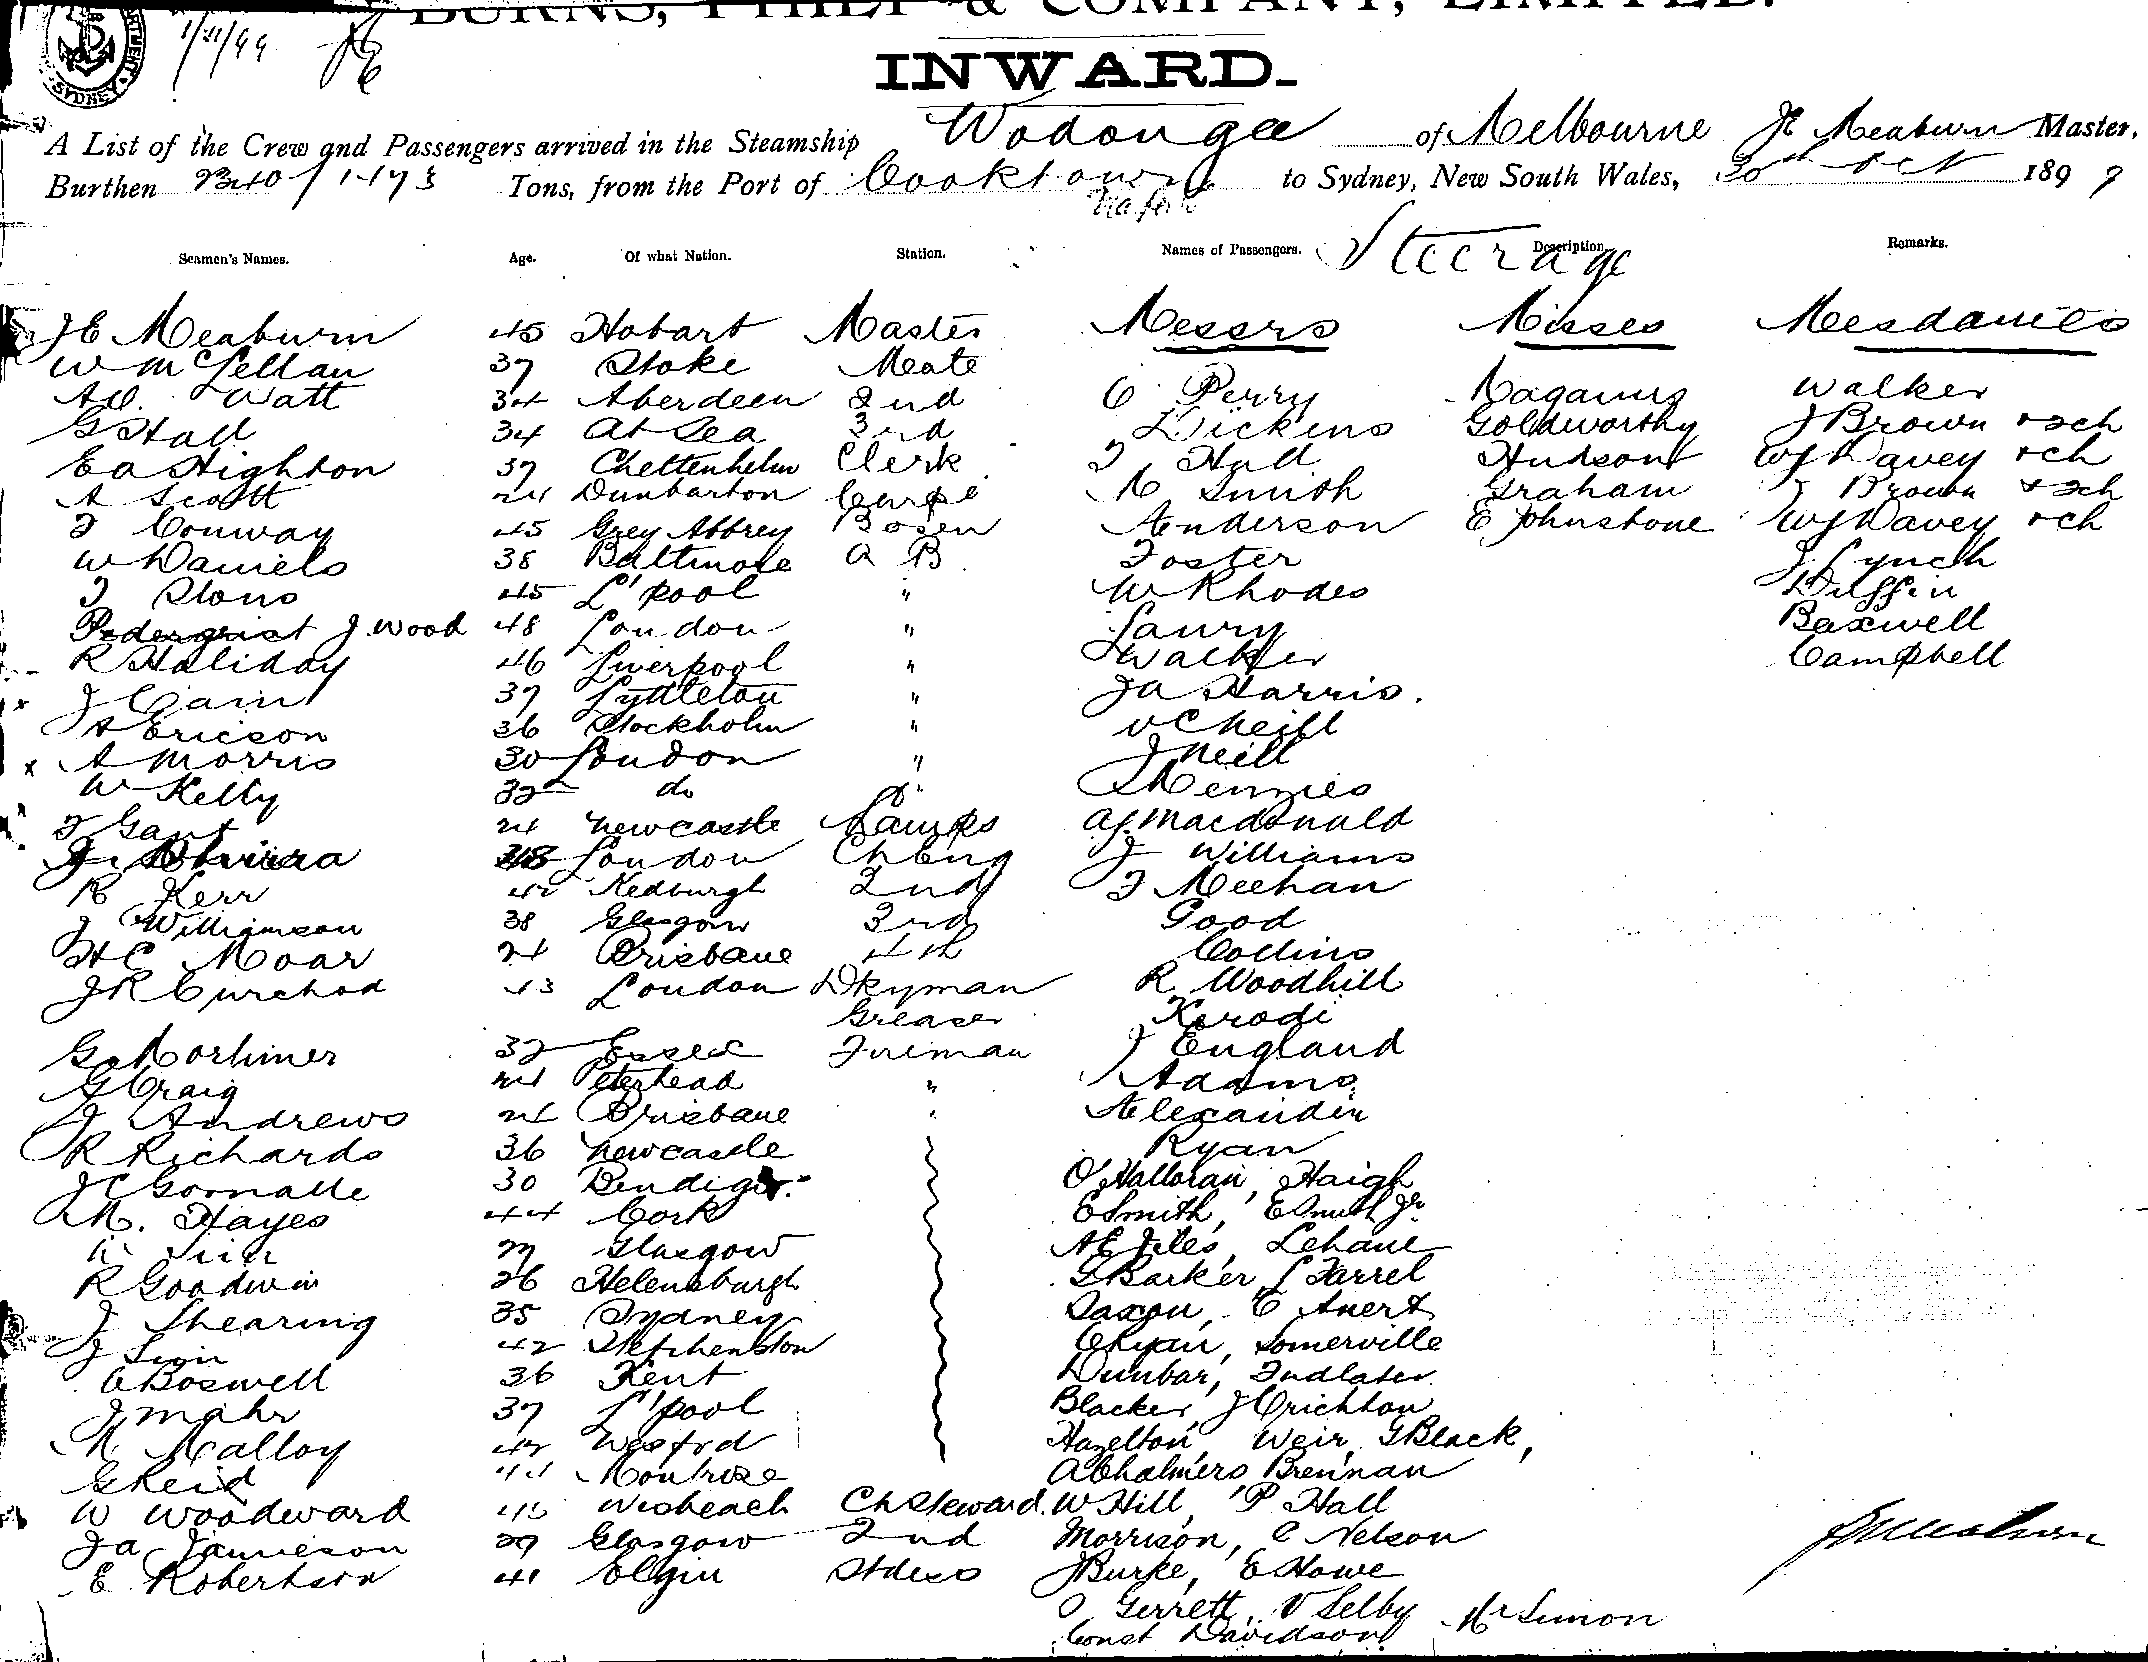 BURNS, PHILP & COMPANY, LIMITED.
SYDNEY
INWARD.
A List of the Crew and Passengers arrived in the Steamship Wodonga of Melbourne JE Meaburn Master,
Burthen 2340/1473 Tons, from the Port of Cooktown to Sydney, New South Wales, 30th Oct 1899
Seamen's Names. Age. Of what Nation. Station. Names of Passengers. Steerage Description. Remarks.
JE Meaburn 45 Hobart Master Messrs Misses Mesdames
W McLellan 37 Stoke Mate
AD. Watt 34 Aberdeen 2nd C Perry Walker
G Hall 34 At Sea 3rd Dickens Goldsworthy J Brown + 2ch
EA Highton 37 Cheltenhelm Clerk Hall Hudson WJ Davey + ch
A Scott 24 Dunbarton Carp M Smith Graham J Brown + 2ch
J Conway 45 Grey Abbey Bosen Anderson E Johnstone WJ Davey + ch
W Daniels 38 Baltimore A B Foster J Lynch
45 L'pool " W Rhodes Duffin
J. Wood 48 London " Lawry Baxwell
R Haliday 46 Liverpool " Walker Campbell
J Cain 37 Lyttleton " JA Harris.
A Ericson 36 Stockholm "
x A Morris 30 London " J Neill
W Kelly 32 do " Menzies
Gant 24 Newcastle Lamps AJ. Macdonald
London Ch Eng J Williams
R Kerr 2nd J Meehan
J Williamson 38 Glasgow 3rd Good
HC Moar 24 Brisbane 4th Collins
JR Curchod 43 London Dkyman R Woodhill
Greaser Karodi
G Mortimer 32 Essex Fireman J England
G Craig 24 Peterhead " Adams
J Andrews 24 Brisbane " Alexander
R Richards 36 Newcastle Ryan
30 Bendigo O'Halloran, Haigh
M. Hayes 44 Cork E Smith, E Smith Jr
Glasgow AE Jiles, Lehane
R Goodwin 26 Helensburgh G Barker, L Farrel
J Shearing 35 Sydney Saxon,
42 C Ryan, Somerville
Boswell 36 Kent Dunbar, Findlater
J Mahr 37 L'pool Blacker, J Crichton
M Malloy 42 Wexford Hazelton, Weir, G Black,
G Reid 44 Montrose A Chalmers Brennan
W Woodward 45 Wisbeach Ch Steward. W Hill, P Hall
JA Jamieson 29 Glasgow 2nd Morrison, C Nelson
E Robertson 41 Elgin Stdess J Burke, E Howe
Gerrett, V Selby Mr Simon
Const Davidson